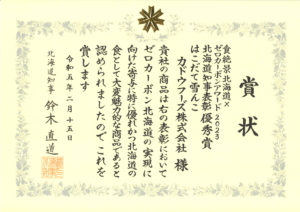 賞状
貴絶景北海道×
ゼロカーボンアワード2023
北海道知事表彰優秀賞
はこだて雪んこ
カドウフーズ株式会社 様
貴社の商品は右の表彰において
ゼロカーボン北海道の実現に
向けた寄与に特に優れかつ北海道の
食として大変魅力的な商品であると
認められましたのでこれを
賞します
令和五年二月十五日
北海道知事 鈴木直道